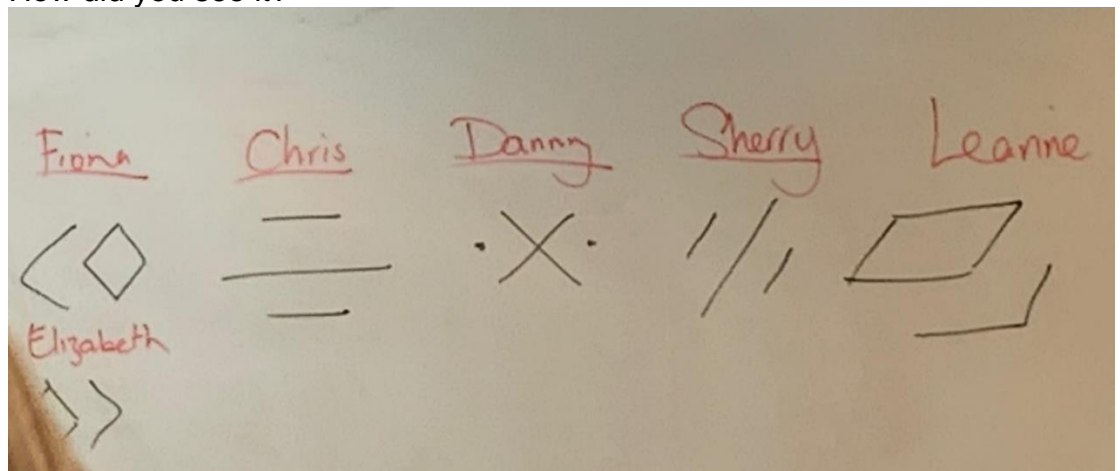 How did you see it?
Fiona Chris Danny Sherry Leanne
Elizabeth